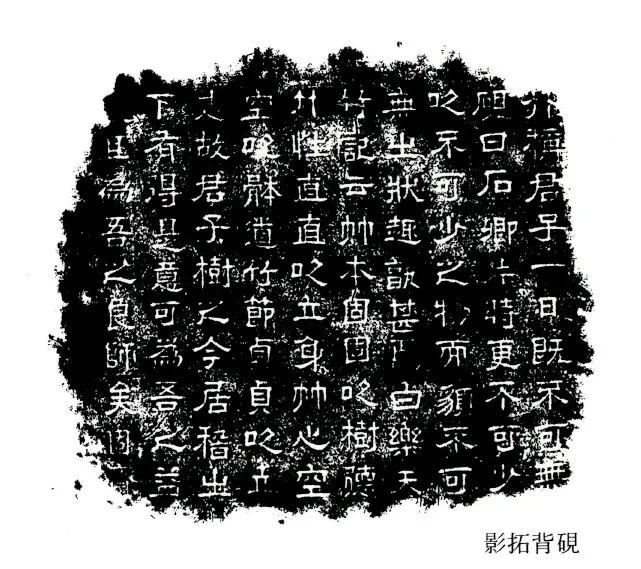 竹稱君子一日既不可無
硯曰石卿片時更不可少
以不可少之物而類不可
無之狀趣甚白樂天
竹記云竹本固固以樹德
竹性直直以立身竹心空
空以體道竹節貞貞以立
志故君子樹之今居之
下有得是意可為吾之益
且為吾之良師矣
硯背拓影